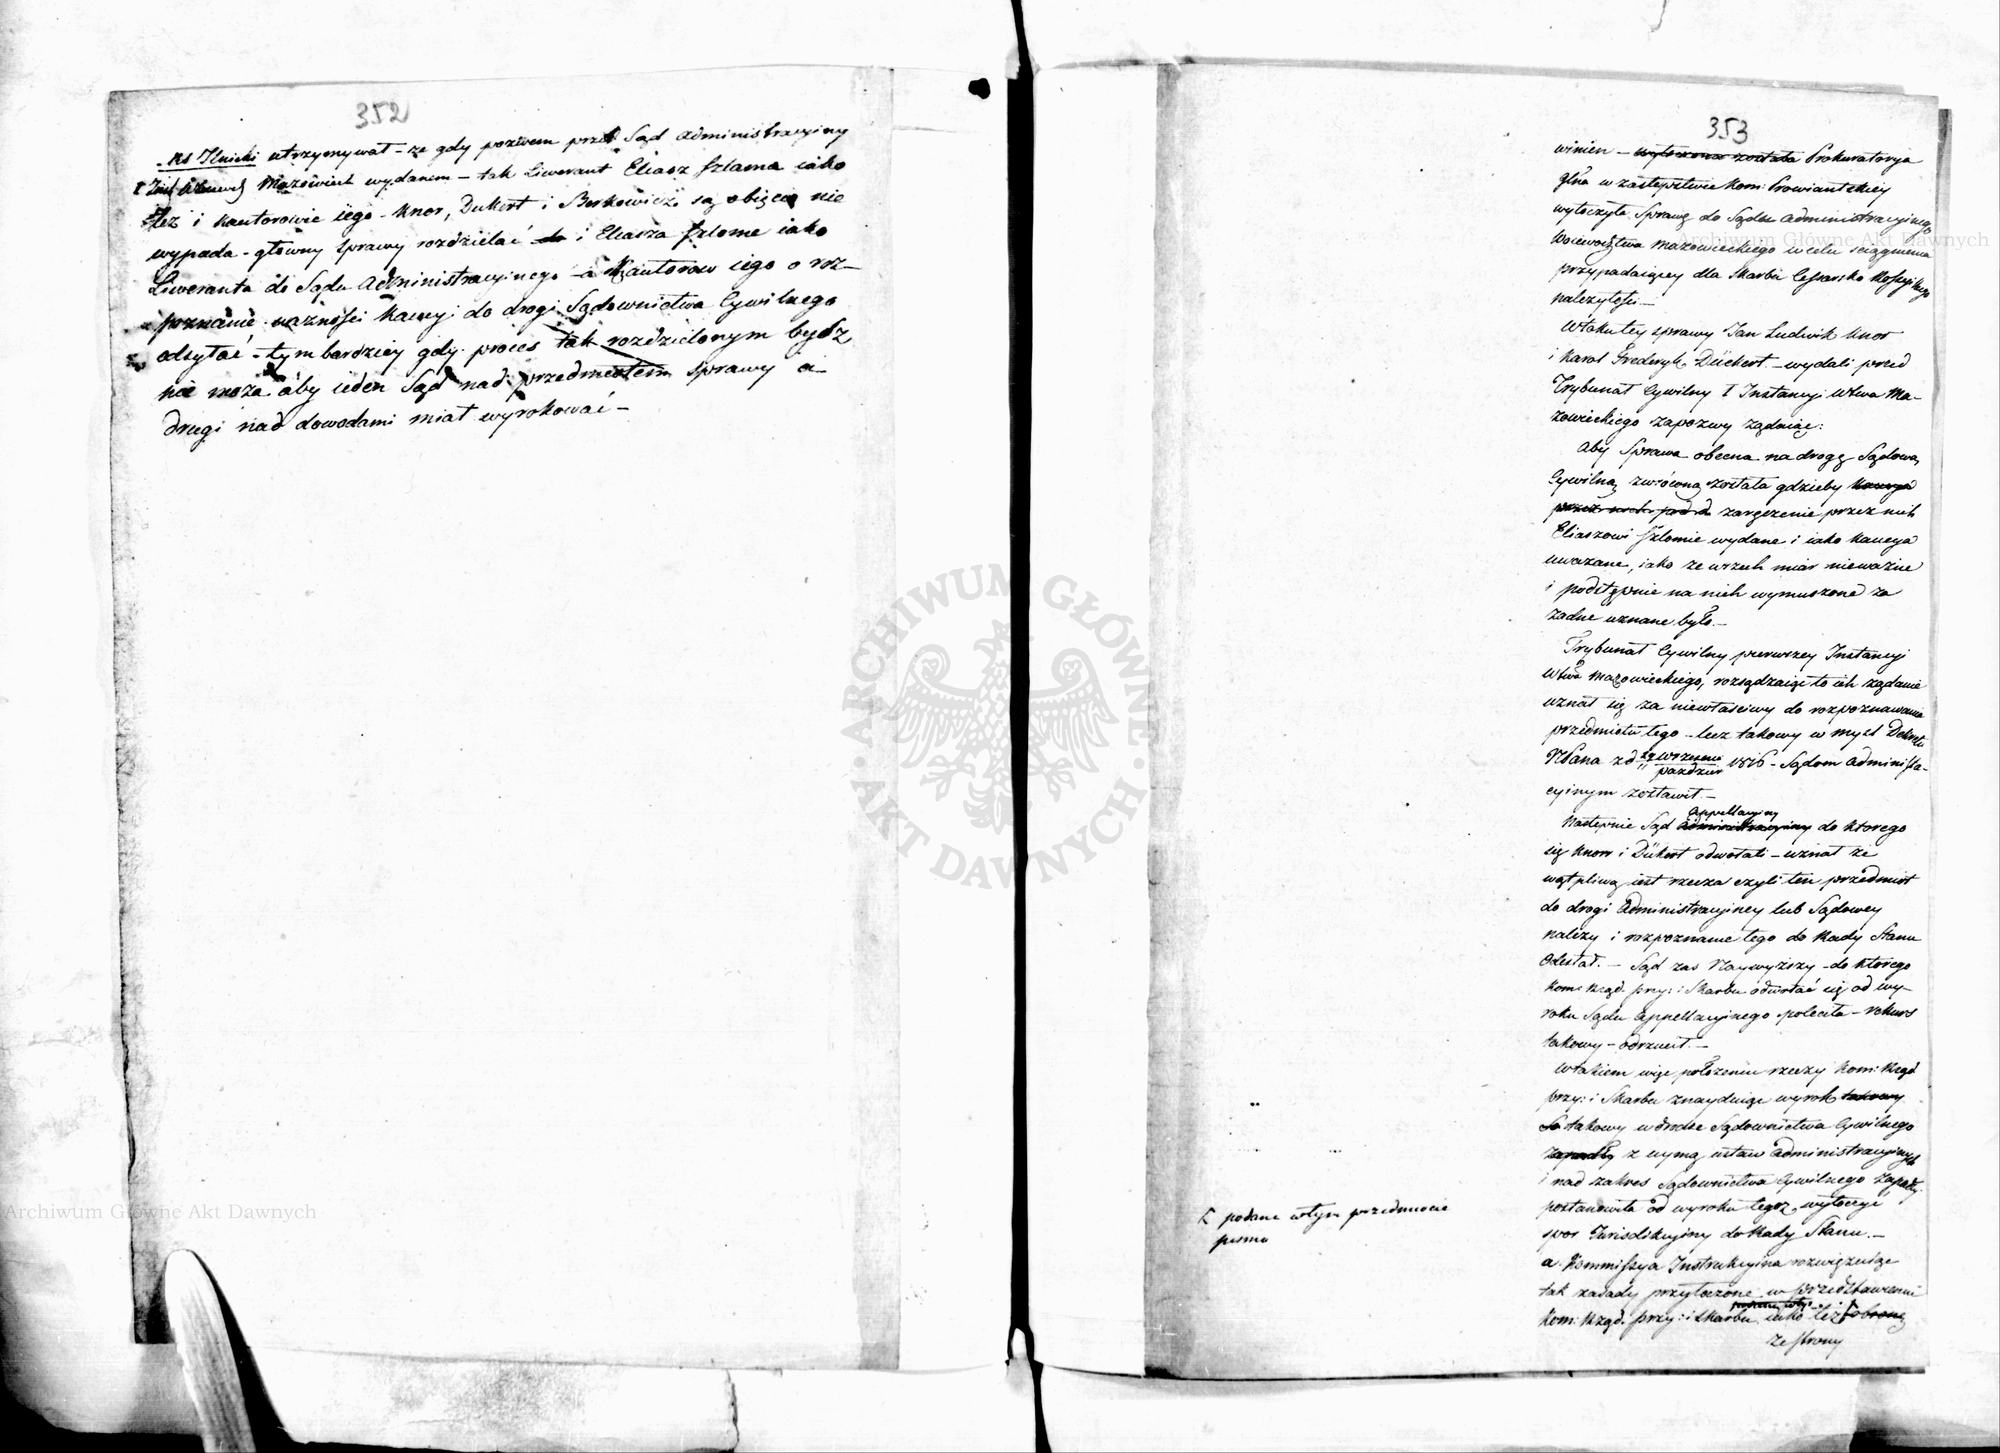 352
Ks Ilnicki utrzymywał - że gdy pozwem przed Sąd Administracyiny
Mazowieck wydanem - tak Liwerant Eliasz Szlama iako
też i Kantorowie iego - Knor, Dukert i Berkowicz są obięci nie
wypada - główny sprawy rozdzielać i Eliasza Szlome iako
Liweranta do Sądu Administracyinego - a Kantorow iego o roz-
poznanie ważności Kaucyi do drogi Sądownictwa Cywilnego
odsyłać - tym bardziey gdy proces tak rozdzielonym bydz
nie może aby ieden Sąd nad przedmiotem sprawy a
drugi nad dowodami miał wyrokować -
353
winien - wytoczona została Prokuratorya
Glna w zastępstwie Kom: Prowiantskiey
wytoczyła Sprawę do Sądu Administracyinego
Woiewodztwa Mazowieckiego w celu sciągnienia
przypadaiącey dla Skarbu Cesarsko Rossyiskiego
należytości -
Wtoku tey sprawy Jan Ludwik Knor
i Karol Frederyk Dückert - wydali przed
Trybunał Cywilny I Instancyi Wtwa Ma-
zowieckiego zapozwy żądaiąc:
Aby Sprawa obecna na drogę Sądową
Cywilną zwróconą została gdzieby Kaucya
przez nich zaręczenie przez nich
Eliaszowi Szlomie wydane i iako Kaucya
uważane, iako ze wszech miar nieważne
i podstępnie na nich wymuszone za
żadne uznane było. -
Trybunał Cywilny pierwszey Instancyi
Wtwa Mazowieckiego, rozsądzaiąc to ich żądanie
uznał się za niewłaściwy do rozpoznawania
przedmiotu tego - lecz takowy w myśl Dekretu
NPana z d 29 wrzesnia 1816 - Sądom Administra-
11 paździer
cyinym zostawił. -
Appellacyiny
Następnie Sąd Administracyiny do ktorego
się Knor i Dükert odwołali - uznał że
wątpliwą iest rzeczą czyli ten przedmiot
do drogi Administracyiney lub Sądowey
należy i rozpoznanie tego do Rady Stanu
Odesłał. - Sąd zas Naywyższy - do ktorego
Kom: Rząd. przy: i Skarbu odwołać się od wy-
roku Sądu Appellacyinego poleciła - rekurs
takowy - odrzucił. -
Wtakiem więc położeniu rzeczy Kom: Rząd
przy: i Skarbu znayduiąc wyrok takowy
takowy w drodze Sądownictwa Cywilnego
zapadły z uymą ustaw Administracyinych
i nad zakres Sądownictwa Cywilnego zapadły
postanowiła od wyroku tegoż wytoczyć
spor Jurisdikcyiny do Rady Stanu. -
a Kommissya Instrukcyina rozwiązuiąc
tak zasady przytoczone w przedstawieniu
Kom: Rząd. przy: i Skarbu iako też obronę
ze strony
podane w tym przedmiocie
pisma
Archiwum Główne Akt Dawnych
Archiwum Główne Akt Dawnych
ARCHIWUM GŁÓWNE · AKT DAWNYCH ·